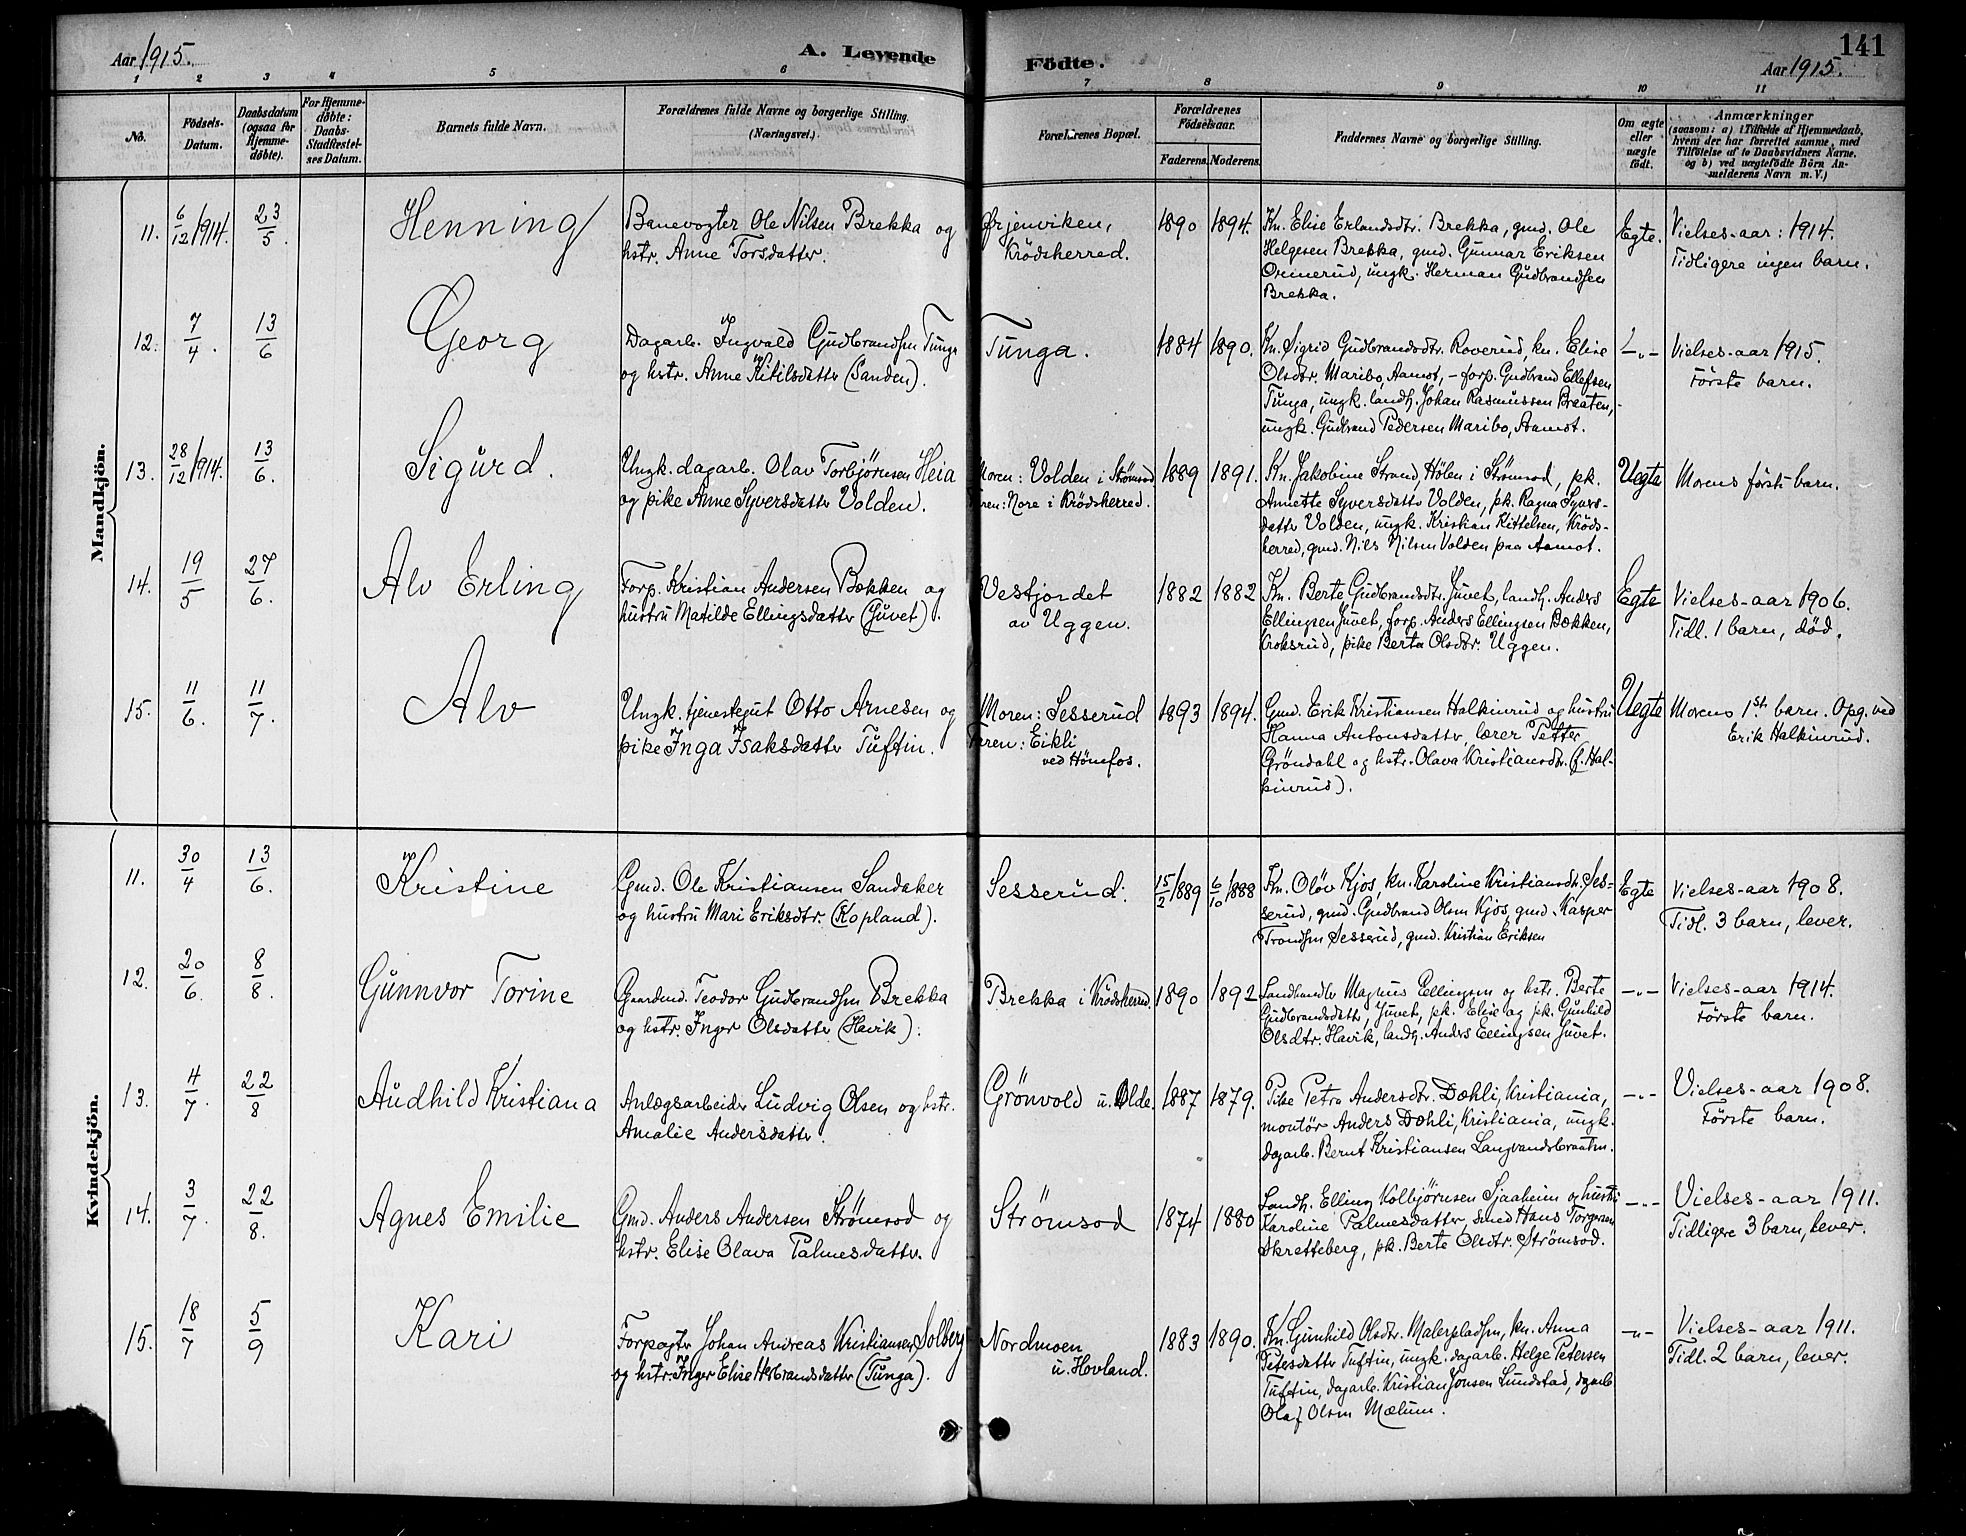 Aar 1915. A. Levende Fødte. Aar 1915. 141
1 2 3 4 5 6 7 8 9 10 11
No.
Fødsels-
Datum.
Daabsdatum
(ogsaa for
Hjemme-
døbte).
For Hjemme-
døbte:
Daabs-
Stadfæstel-
ses Datum.
Barnets fulde Navn.
Forældrenes fulde Navne og borgerlige Stilling.
(Næringsvei.)
Forældrenes Bopæl.
Forældrenes
Fødselsaar.
Faderens. Moderens.
Faddernes Navne og borgerlige Stilling.
Om ægte
eller
uægte
født.
Anmærkninger
(saasom: a) i Tilfælde af Hjemmedaab,
hvem der har forrettet samme, med
Tilføielse af to Daabsvidners Navne.
og b) ved uægtefødte Børn An-
melderens Navn m. V.)
Mandkjön.
11. 6/12 1914. 23/5. Henning
Banevogter Ole Nilsen Brekka og
hstr. Anne Torsdatter.
Ørjenviken,
Krödsherred.
1890 1894.
Kn. Elise Erlandsdtr. Brekka, gmd. Ole
Helgesen Brekka, gmd. Gunnar Eriksen
Ormerud, ungk. Herman Gudbrandsen
Brekka.
Egte.
Vielses-aar: 1914.
Tidligere ingen barn.
12. 7/4. 13/6 Georg
Dagarb. Ingvald Gudbrandsen Tunga
og hstr. Anne Kitilsdatter (Sanden).
Tunga.
1884 1890.
Kn. Sigrid Gudbrandsdtr. Roverud, kn. Elise
Olsdtr. Maribo, Aamot, - forp. Gudbrand Ellefsen
Tunga, ungk. landh. Johan Rasmussen Braaten,
ungk. Gudbrand Pedersen Maribo, Aamot.
-„-
Vielses-aar 1915.
Förste barn.
13. 28/12 1914. 13/6. Sigurd.
Ungk. dagarb. Olav Torbjörnsen Heia
og pike Anne Syversdatter Volden.
Moren: Volden i Strömsod
Faren: Nore i Krödsherred.
1889 1891.
Kn. Jakobine Strand, Hölen i Strömsod, pk.
Annette Syversdatter Volden, pk. Ragna Syvers-
datter Volden, ungk. Kristian Kittelsen, Kröds-
herred, gmd. Nils Nilsen Volden paa Aamot.
Uegte
Morens förste barn.
14. 19/5 27/6. Alv Erling
Forp. Kristian Andersen Bækken og
hustru Matilde Ellingsdatter (Juvet).
Vestjordet
av Uggen.
1882 1882
Kn. Berte Gudbrandsdtr. Juvet, landh. Anders
Ellingsen Juvet, forp. Anders Ellingsen Bækken,
Kroksrud, pike Berta Olsdtr. Uggen.
Egte
Vielses-aar 1906.
Tidl. 1 barn, död.
15. 11/6. 11/7. Alv
Ungk. tjenestegut Otto Arnesen og
pike Inga Isaksdatter Tuftin.
Moren: Sesserud
Faren: Eikli
ved Hönefos.
1893 1894.
Gmd. Erik Kristiansen Halkinrud og hustru
Hanna Antonsdatter, lærer Petter
Gröndahl og hstr. Olava Kristiansdtr. (f. Hal-
kinrud).
Uegte
Morens 1ste barn. Opg. ved
Erik Halkinrud.
Kvindekjön.
11. 30/4 13/6. Kristine
Gmd. Ole Kristiansen Sandaker
og hustru Mari Eriksdtr. (Kopland).
Sesserud.
15/2 1889 6/10 1888
Kn. Olöv Kjös, kn. Karoline Kristiansdtr. Ses-
serud, gmd. Gudbrand Olsen Kjös, gmd. Kasper
Trondsen Sesserud, gmd. Kristian Eriksen
Egte
Vielses-aar 1908.
Tidl. 3 barn, lever.
12. 20/6. 8/8. Gunnvor Torine
Gaardmd. Teodor Gudbrandsen Brekka
og hstr. Inger Olsdatter (Havik).
Brekka i Krödsherred.
1890 1892
Landhandler Magnus Ellingsen og hstr. Berte
Gudbrandsdatter Juvet, pk. Elise og pk. Gunhild
Olsdtr. Havik, landh. Anders Ellingsen Juvet.
-„-
Vielses-aar 1914.
Förste barn.
13. 4/7. 22/8 Audhild Kristiana
Anlægsarbeider Ludvig Olsen og hstr.
Amalie Andersdatter.
Grönvold u. Olde.
1887 1879.
Pike Petra Andersdtr. Dæhli, Kristiania,
montör Anders Dæhli, Kristiania, ungk.
dagarb. Bernt Kristiansen Langvandsbraaten.
-„-
Vielses-aar 1908.
Förste barn.
14. 3/7. 22/8. Agnes Emilie
Gmd. Anders Andersen Strömsod og
hstr. Elise Olava Palmesdatter.
Strömsod
1874 1880
Landh. Elling Kolbjörnsen Sjaaheim og hustru
Karoline Palmesdatter, smed Hans Torgersen
Skretteberg, pk. Berte Olsdtr. Strömsod.
-„-
Vielses-aar 1911.
Tidligere 3 barn, lever.
15. 18/7 5/9 Kari
Forpagter Johan Andreas Kristiansen Solberg
og hstr. Inger Elise Herbrandsdatter (Tunga).
Nordmoen
u. Hovland.
1883 1890.
Kn. Gunhild Olsdtr. Malerpladsen, kn. Anna
Petersdatter Tuftin, ungk. dagarb. Helge Petersen
Tuftin, dagarb. Kristian Jonsen Lundstad, dagarb.
Olaf Olsen Mælum.
-„-
Vielses-aar 1911.
Tidl. 2 barn, lever.